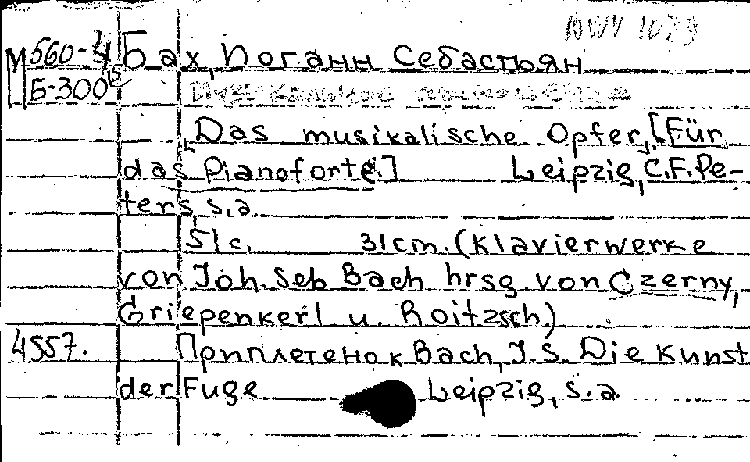 BWV 1079
М560-4 Бах, Иоганн Себастьян
Б-300
Das musikalische Opfer, [Für
das Pianoforte.] Leipzig, C.F. Pe-
ters, s.a.
51 c. 31 cm. (Klavierwerke
von Joh. Seb Bach hrsg. von Czerny,
Griepenkerl u. Roitzsch)
4557. Приплетено к Bach, J.S. Die Kunst
der Fuge Leipzig, s.a